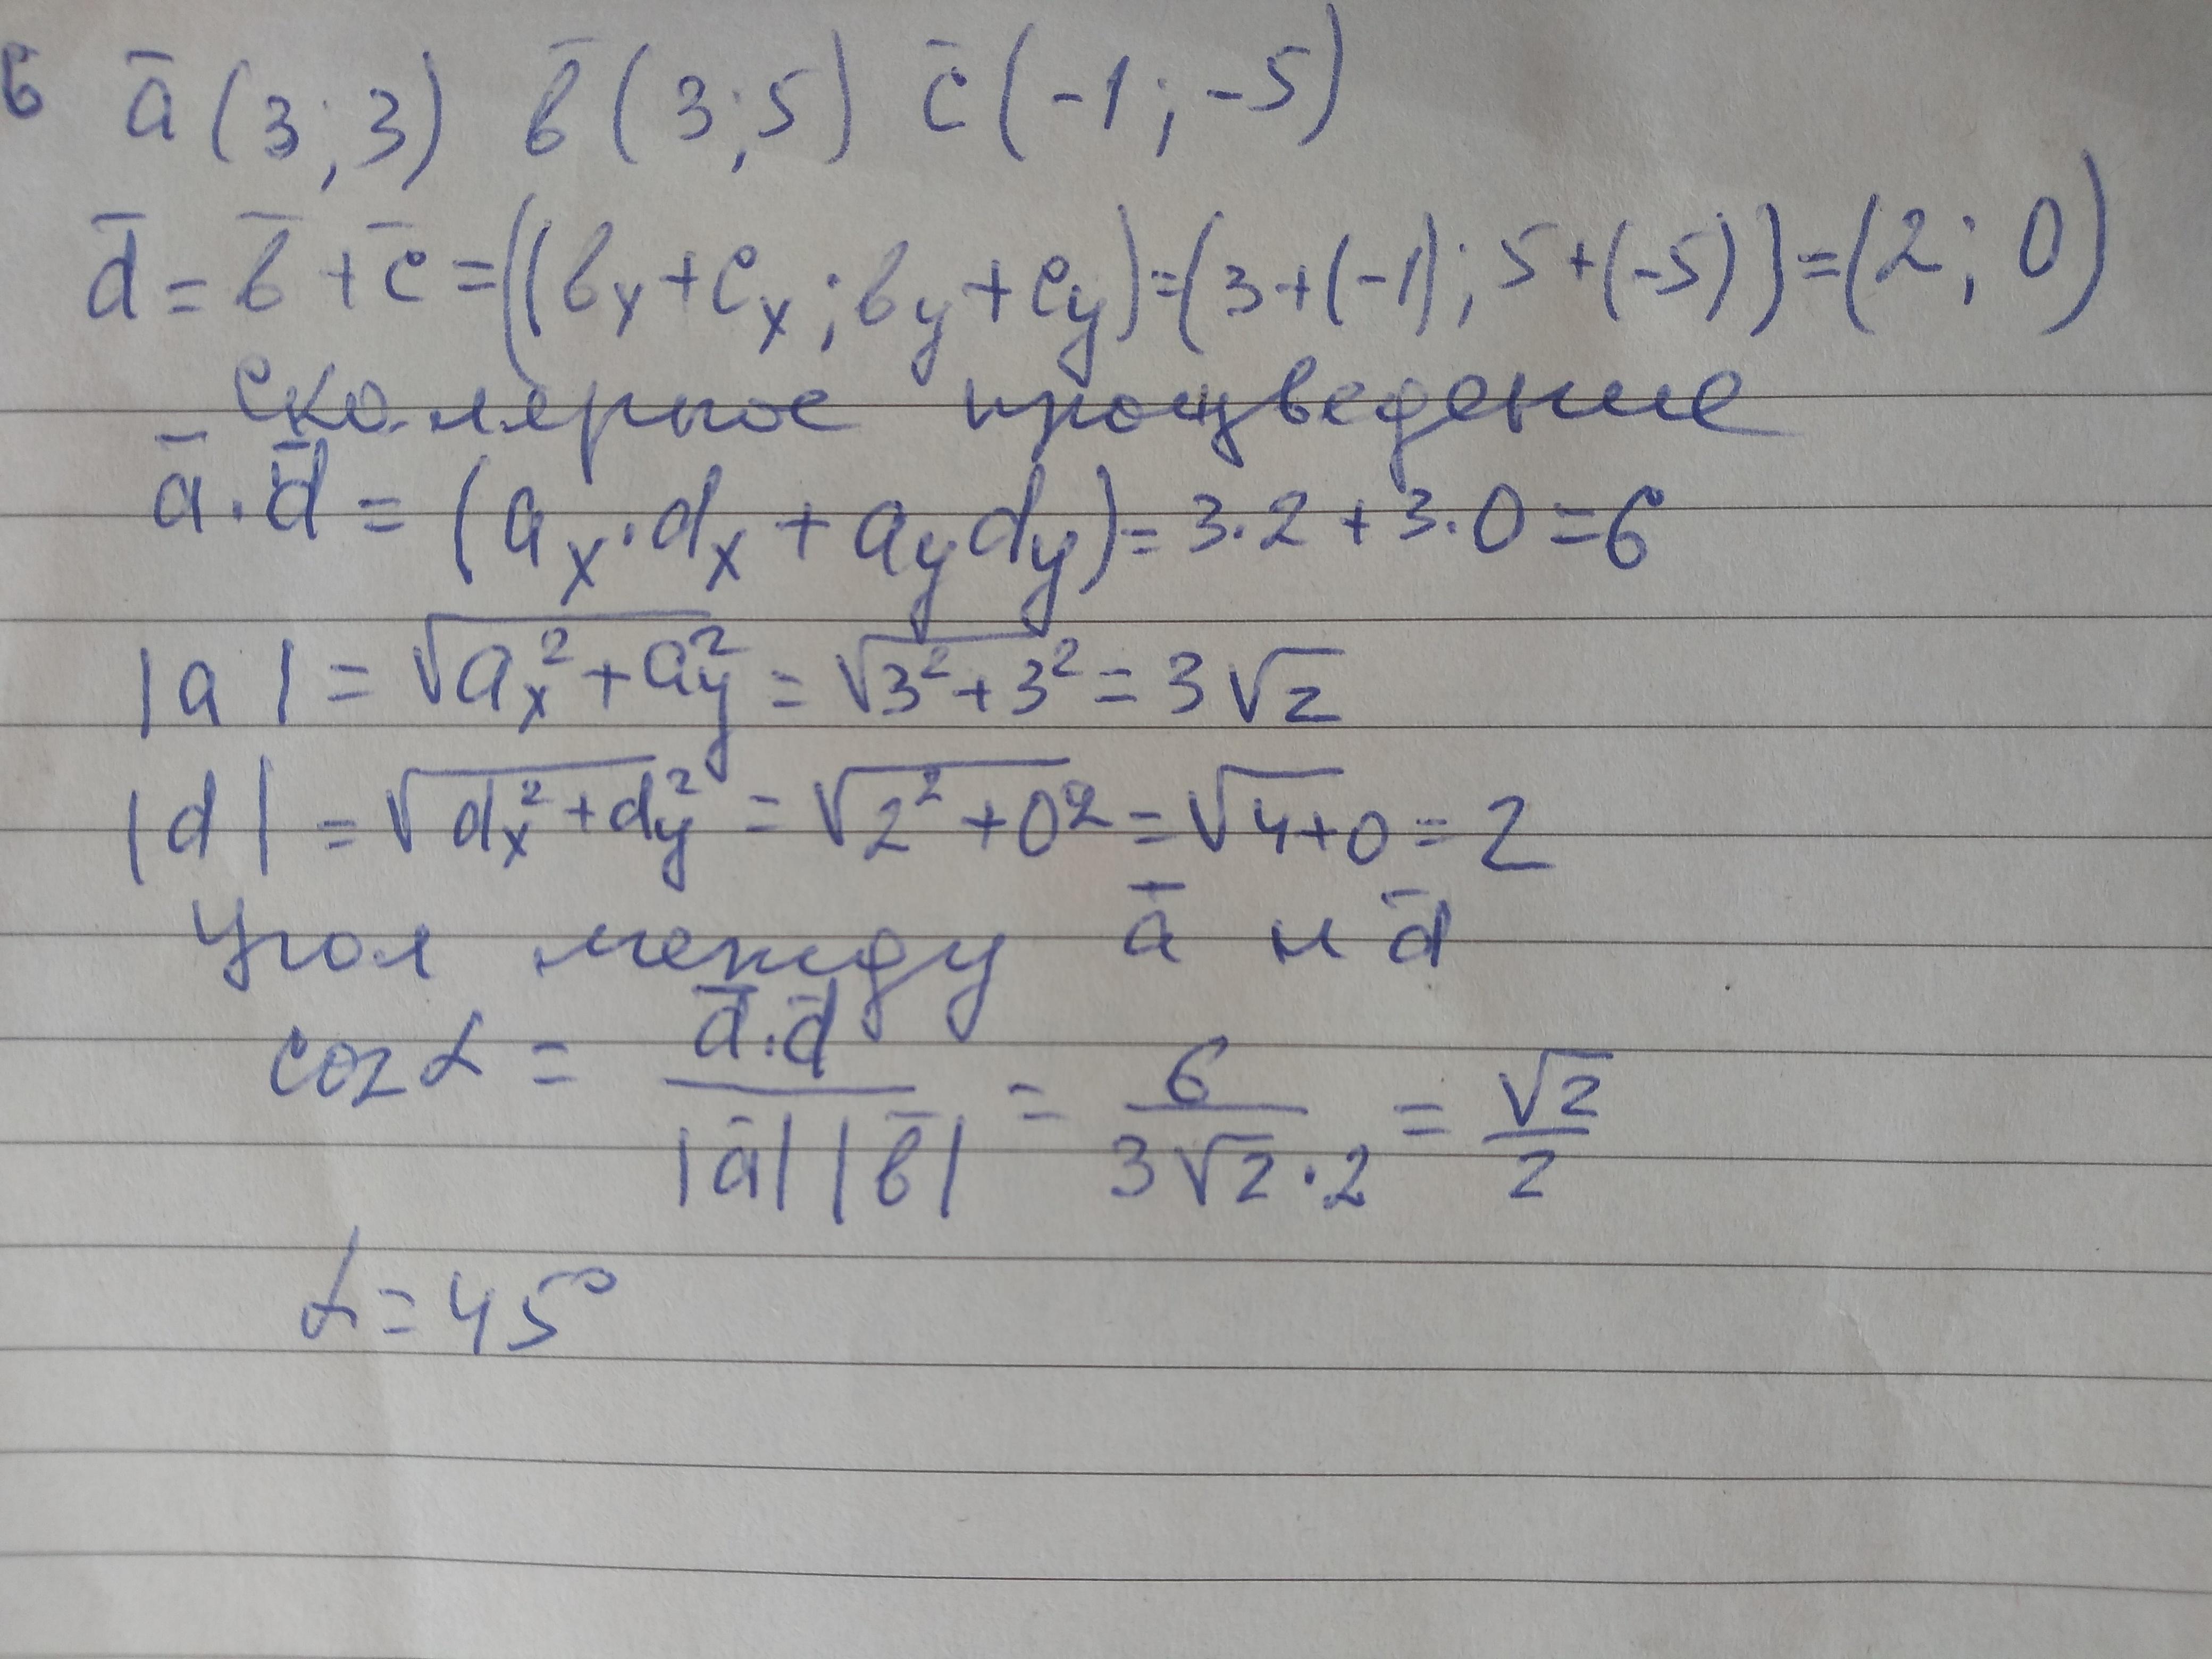 6 a̅ (3; 3) b̅ (3; 5) c̅ (-1; -5)
d̅ = b̅ + c̅ = ((bx + cx; by + cy) = (3 + (-1); 5 + (-5)) = (2; 0)
скалярное произведение
a̅ · d̅ = (ax · dx + ay dy) = 3·2 + 3·0 = 6
|a| = √(ax² + ay²) = √(3² + 3²) = 3√2
|d| = √(dx² + dy²) = √(2² + 0²) = √(4+0) = 2
Угол между a̅ и d̅
cos α = a̅·d̅ / |a̅| |b̅| = 6 / 3√2·2 = √2 / 2
α = 45°